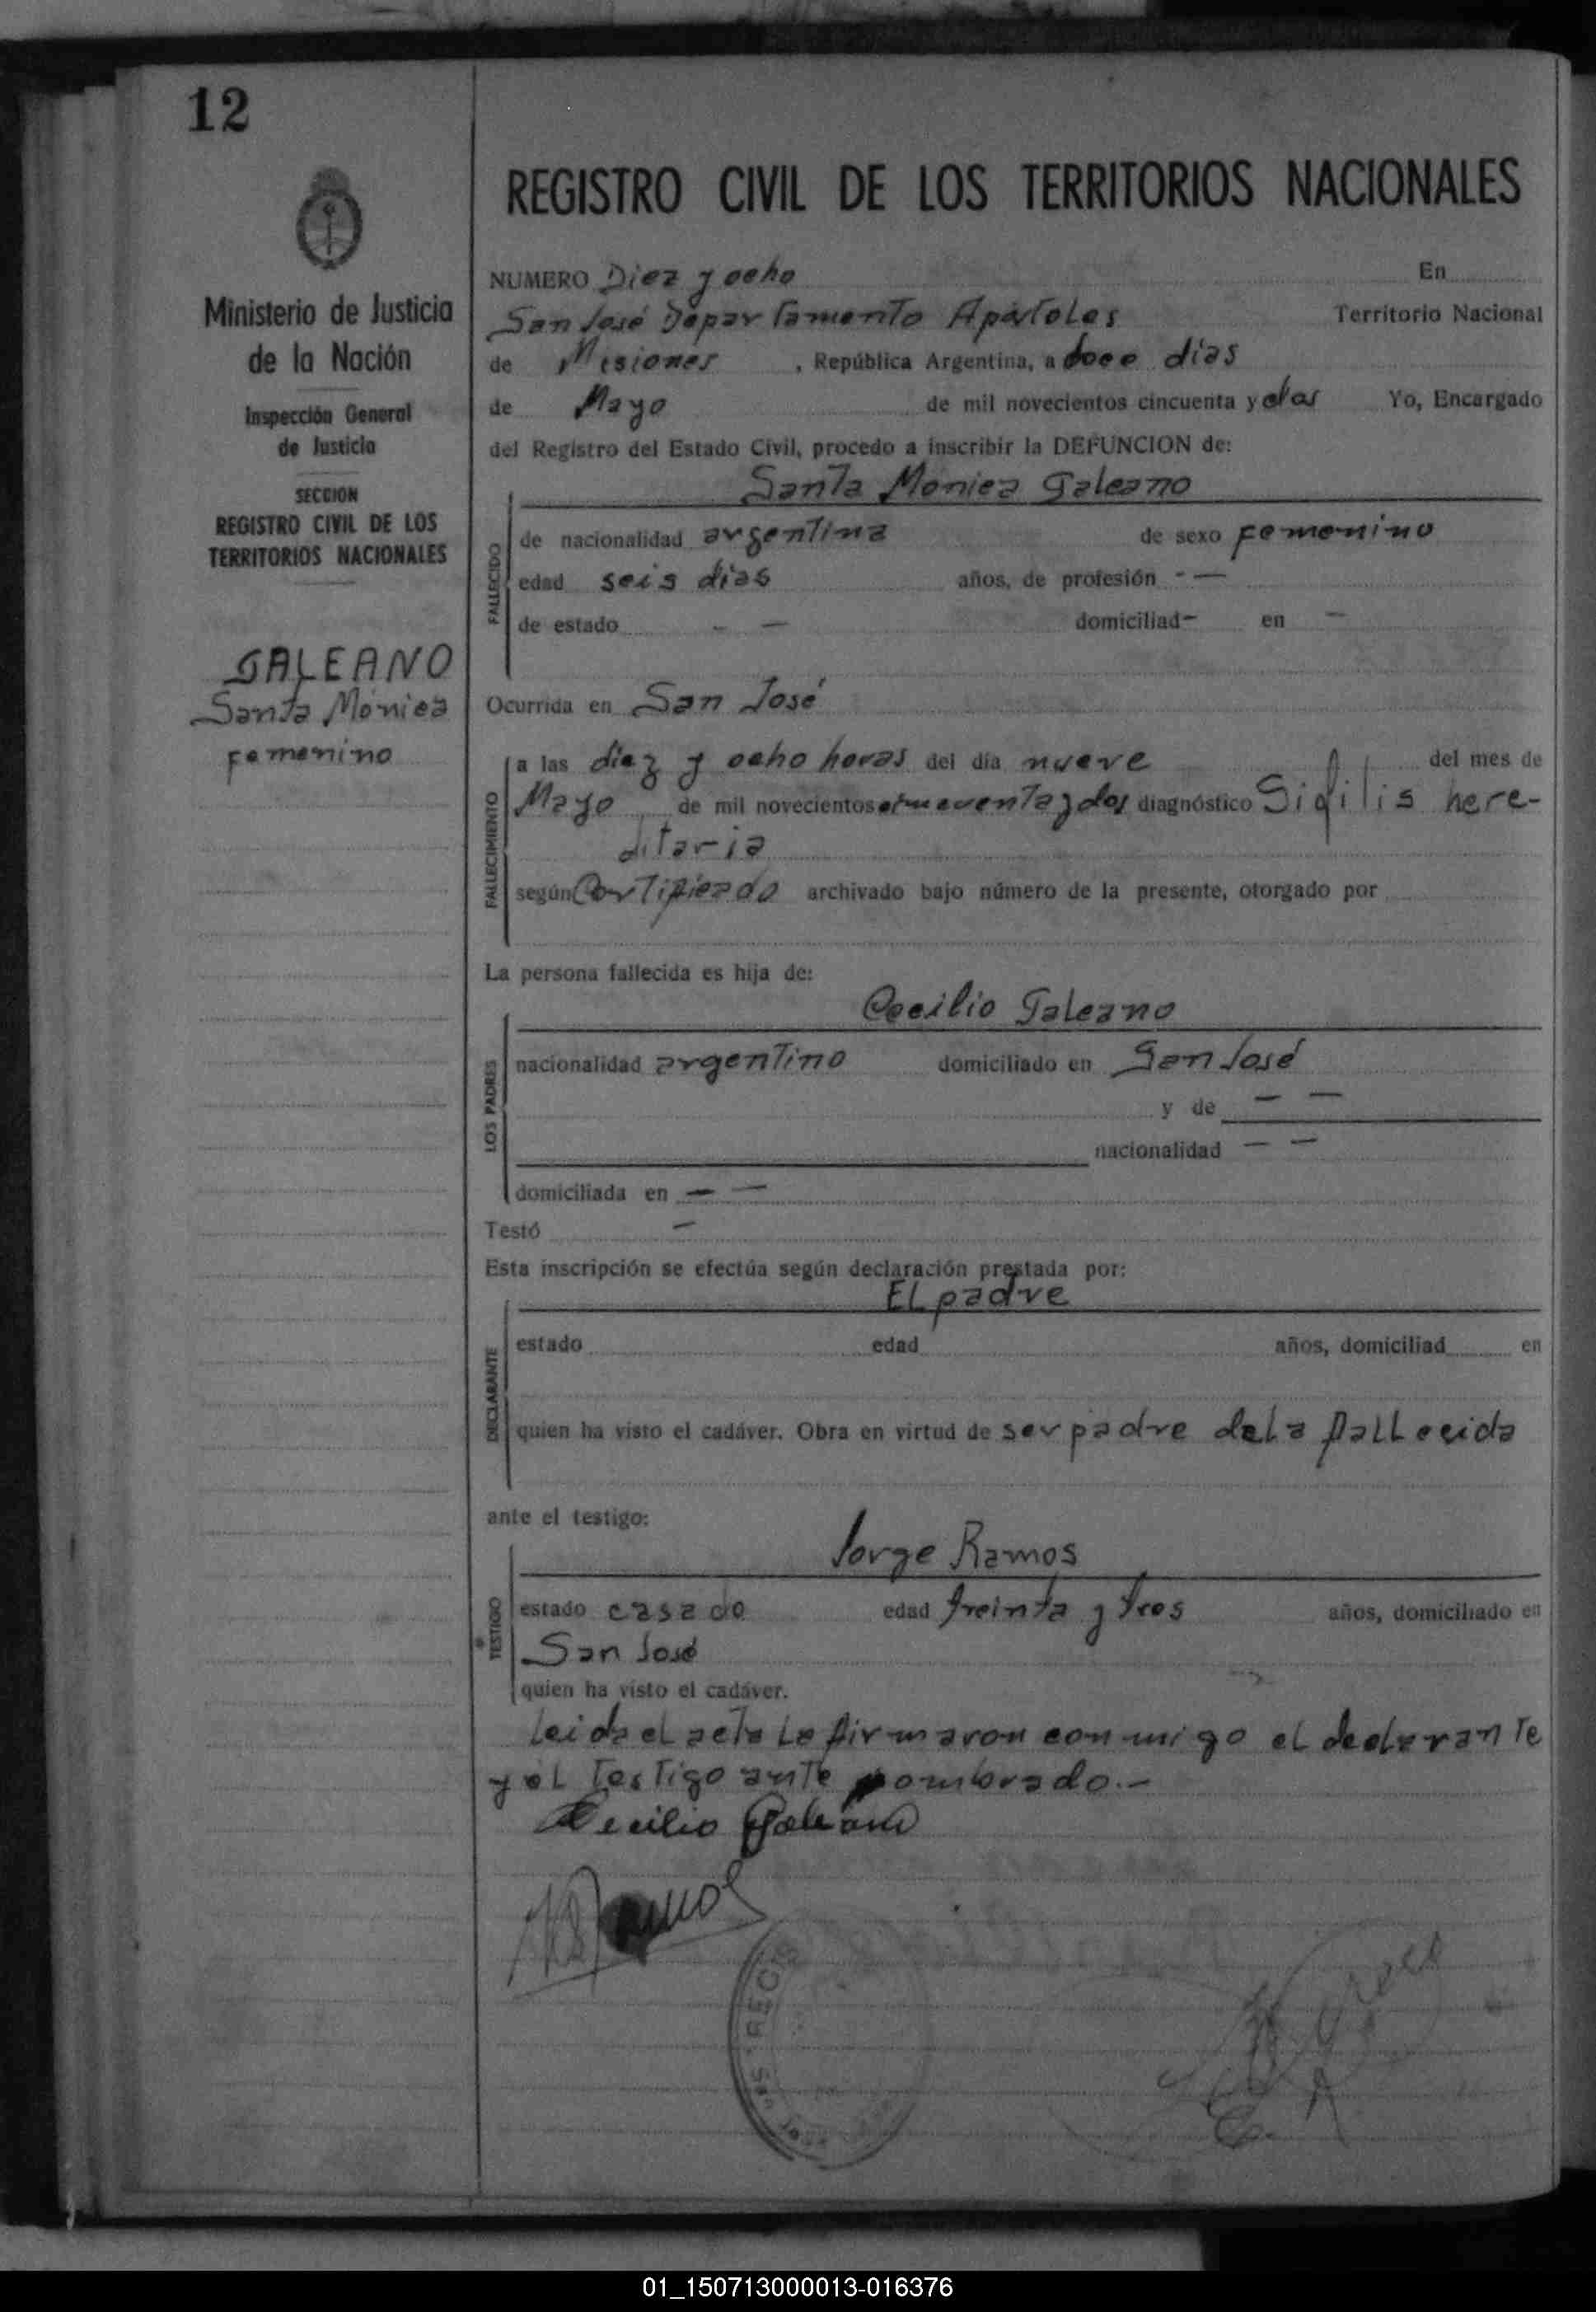 12
REGISTRO CIVIL DE LOS TERRITORIOS NACIONALES
Ministerio de Justicia
de la Nación
Inspección General
de Justicia
SECCION
REGISTRO CIVIL DE LOS
TERRITORIOS NACIONALES
GALEANO
Santa Mónica
femenino
NUMERO Diez y ocho En
San José Departamento Apóstoles Territorio Nacional
de Misiones , República Argentina, a doce días
de Mayo de mil novecientos cincuenta y dos Yo, Encargado
del Registro del Estado Civil, procedo a inscribir la DEFUNCION de:
Santa Mónica Galeano
FALLECIDO
de nacionalidad argentina de sexo femenino
edad seis días años, de profesión - —
de estado - — domiciliad- en —
Ocurrida en San José
FALLECIMIENTO
a las diez y ocho horas del día nueve del mes de
Mayo de mil novecientos cincuenta y dos diagnóstico Sifilis here-
ditaria
según Certificado archivado bajo número de la presente, otorgado por
La persona fallecida es hija de:
Cecilio Galeano
LOS PADRES
nacionalidad argentino domiciliado en San José
y de — —
nacionalidad — —
domiciliada en — —
Testó —
Esta inscripción se efectúa según declaración prestada por:
El padre
DECLARANTE
estado edad años, domiciliad en
quien ha visto el cadáver. Obra en virtud de ser padre de la fallecida
ante el testigo:
Jorge Ramos
TESTIGO
estado casado edad treinta y tres años, domiciliado en
San José
quien ha visto el cadáver.
Leida el acta la firmaron conmigo el declarante
y el testigo ante nombrado.-
Cecilio Galeano
Ramos
01_150713000013-016376